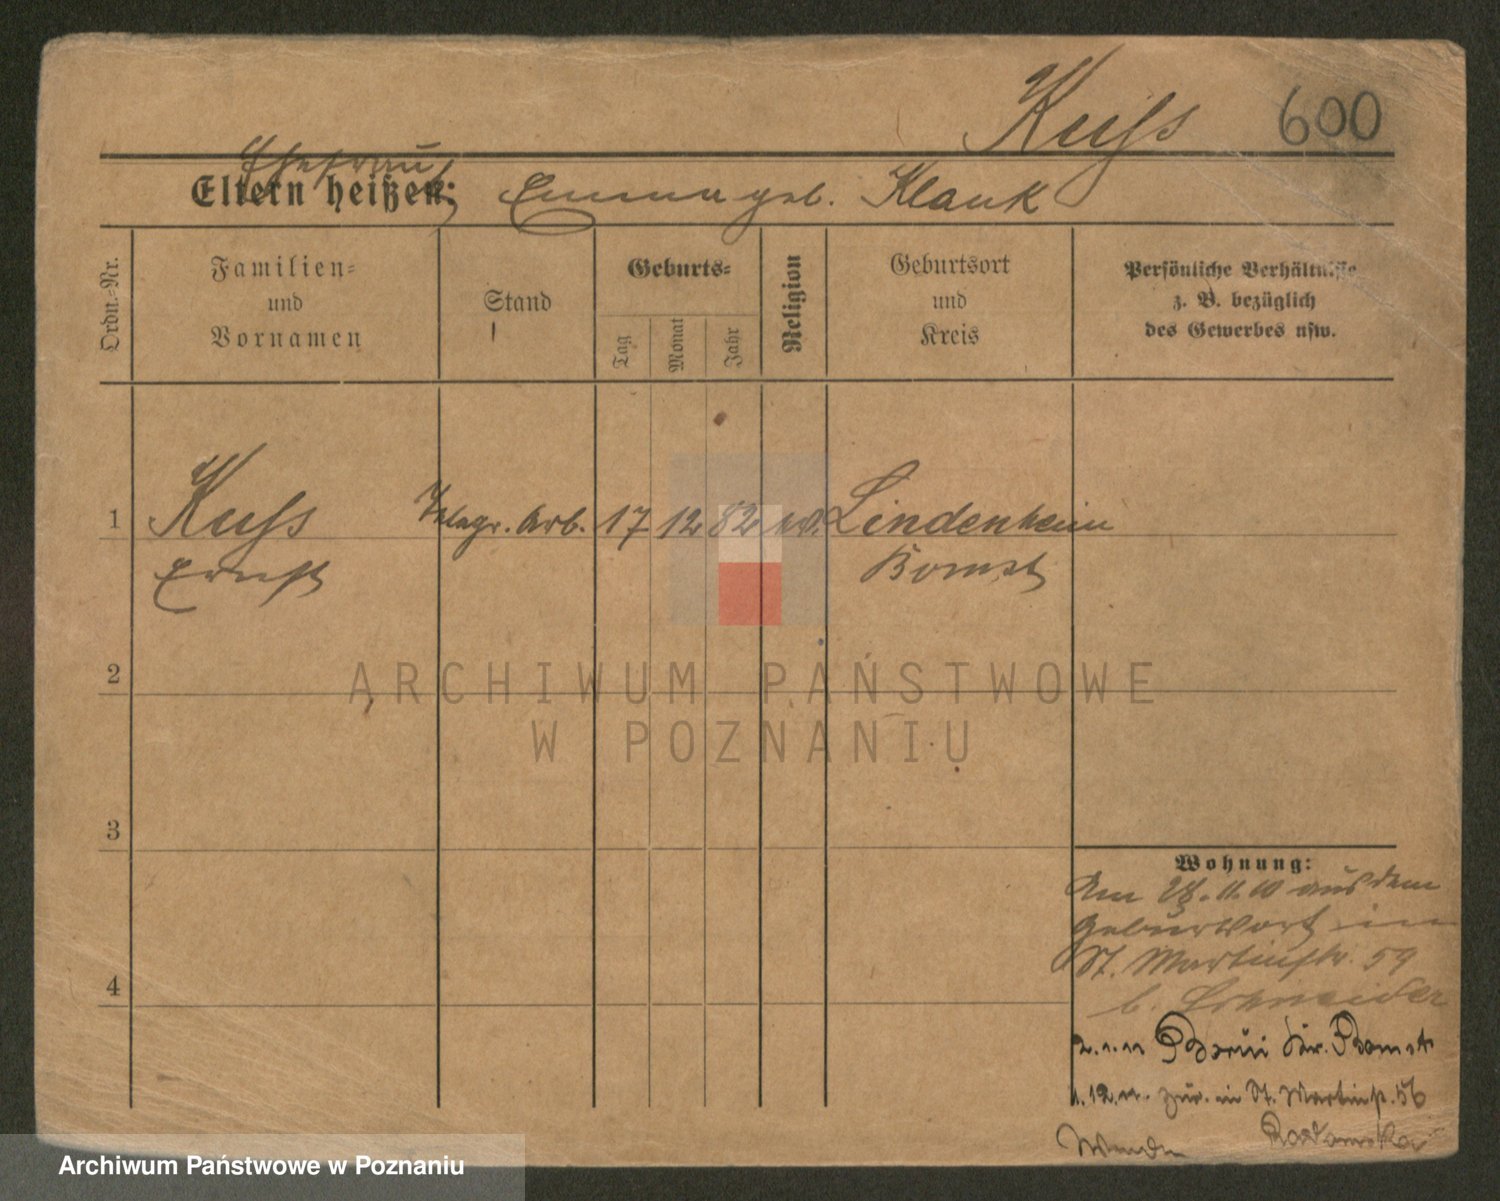 Kuss 600
Ehefrau
Eltern heißen: Emma geb. Klauk
Ordn.-Nr.
Familien-
und
Vornamen
Stand
Geburts-
Tag
Monat
Jahr
Religion
Geburtsort
und
Kreis
Persönliche Verhältnisse
z. B. bezüglich
des Gewerbes usw.
1 Kuss Telegr. Arb. 17 12 82 Lindenheim
Ernst Bomst
2
3
4
Wohnung:
Am 28.11.10 aus dem
Geburtsort in
St. Martinstr. 59
b. Schneider
2.1.11 Borui Kr. Bomst
1.12.11. zur. in St. Martinstr. 56
Radomska
Wenden
ARCHIWUM PAŃSTWOWE
W POZNANIU
Archiwum Państwowe w Poznaniu